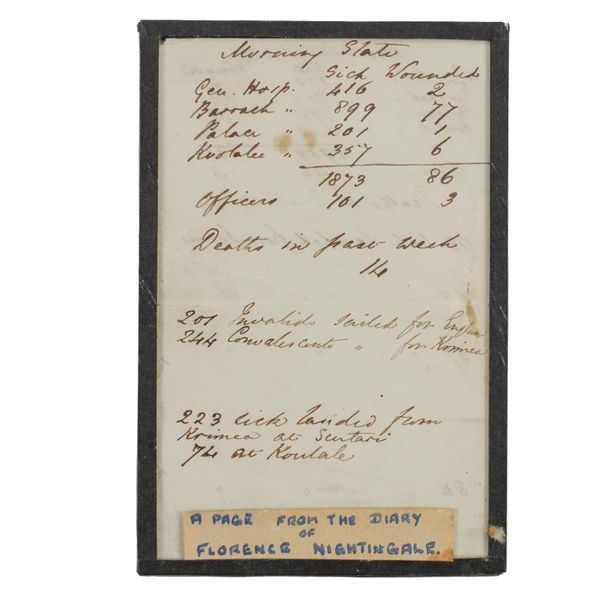 Morning State
Sick Wounded
Gen. Hosp. 416 2
Barrack " 899 77
Palace " 201 1
Koolalee " 357 6
1873 86
Officers 101 3
Deaths in past week
14
201 Invalids sailed for England
244 Convalescents " for Krimea
223 sick landed from
Krimea at Scutari
74 at Koulale
A PAGE FROM THE DIARY
OF
FLORENCE NIGHTINGALE.